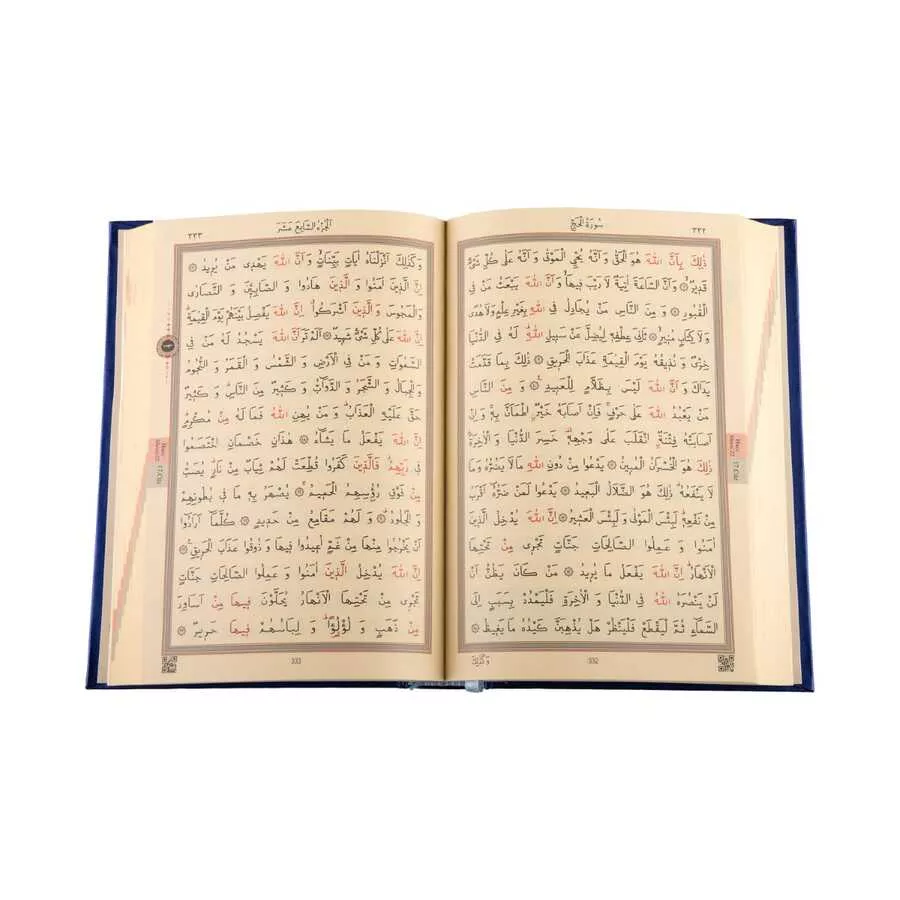 سُورَةُ الْحَجِّ
٣٣٢
ذٰلِكَ بِاَنَّ اللّٰهَ هُوَ الْحَقُّ وَ اَنَّهُ يُحْيِي الْمَوْتٰى وَ اَنَّهُ عَلٰى كُلِّ شَىْءٍ
قَدِيرٌ ۞ وَ اَنَّ السَّاعَةَ اٰتِيَةٌ لَا رَيْبَ فِيهَا وَ اَنَّ اللّٰهَ يَبْعَثُ مَنْ فِى
الْقُبُورِ ۞ وَ مِنَ النَّاسِ مَنْ يُجَادِلُ فِى اللّٰهِ بِغَيْرِ عِلْمٍ وَلَا هُدًى
وَلَا كِتَابٍ مُنِيرٍ ۞ ثَانِىَ عِطْفِهِ لِيُضِلَّ عَنْ سَبِيلِ اللّٰهِ لَهُ فِى الدُّنْيَا
خِزْىٌ وَ نُذِيقُهُ يَوْمَ الْقِيٰمَةِ عَذَابَ الْحَرِيقِ ۞ ذٰلِكَ بِمَا قَدَّمَتْ
يَدَاكَ وَ اَنَّ اللّٰهَ لَيْسَ بِظَلَّامٍ لِلْعَبِيدِ ۞ وَ مِنَ النَّاسِ
مَنْ يَعْبُدُ اللّٰهَ عَلٰى حَرْفٍ فَاِنْ اَصَابَهُ خَيْرٌ اطْمَاَنَّ بِهِ وَ اِنْ
اَصَابَتْهُ فِتْنَةٌ انْقَلَبَ عَلٰى وَجْهِهِ خَسِرَ الدُّنْيَا وَ الْاٰخِرَةَ
ذٰلِكَ هُوَ الْخُسْرَانُ الْمُبِينُ ۞ يَدْعُوا مِنْ دُونِ اللّٰهِ مَا لَا يَضُرُّهُ وَمَا
لَا يَنْفَعُهُ ذٰلِكَ هُوَ الضَّلَالُ الْبَعِيدُ ۞ يَدْعُوا لَمَنْ ضَرُّهُ اَقْرَبُ
مِنْ نَفْعِهِ لَبِئْسَ الْمَوْلٰى وَ لَبِئْسَ الْعَشِيرُ ۞ اِنَّ اللّٰهَ يُدْخِلُ الَّذِينَ
اٰمَنُوا وَ عَمِلُوا الصَّالِحَاتِ جَنَّاتٍ تَجْرِى مِنْ تَحْتِهَا
الْاَنْهَارُ اِنَّ اللّٰهَ يَفْعَلُ مَا يُرِيدُ ۞ مَنْ كَانَ يَظُنُّ اَنْ
لَنْ يَنْصُرَهُ اللّٰهُ فِى الدُّنْيَا وَ الْاٰخِرَةِ فَلْيَمْدُدْ بِسَبَبٍ اِلَى
السَّمَاءِ ثُمَّ لْيَقْطَعْ فَلْيَنْظُرْ هَلْ يُذْهِبَنَّ كَيْدُهُ مَا يَغِيظُ ۞
وَكَذٰلِكَ
332
اَلْجُزْءُ السَّابِعَ عَشَرَ
٣٣٣
وَ كَذٰلِكَ اَنْزَلْنَاهُ اٰيَاتٍ بَيِّنَاتٍ وَ اَنَّ اللّٰهَ يَهْدِى مَنْ يُرِيدُ ۞
اِنَّ الَّذِينَ اٰمَنُوا وَ الَّذِينَ هَادُوا وَ الصَّابِئِينَ وَ النَّصَارٰى
وَ الْمَجُوسَ وَ الَّذِينَ اَشْرَكُوا اِنَّ اللّٰهَ يَفْصِلُ بَيْنَهُمْ يَوْمَ الْقِيٰمَةِ
اِنَّ اللّٰهَ عَلٰى كُلِّ شَىْءٍ شَهِيدٌ ۞ اَلَمْ تَرَ اَنَّ اللّٰهَ يَسْجُدُ لَهُ مَنْ فِى
السَّمٰوَاتِ وَ مَنْ فِى الْاَرْضِ وَ الشَّمْسُ وَ الْقَمَرُ وَ النُّجُومُ
وَ الْجِبَالُ وَ الشَّجَرُ وَ الدَّوَابُّ وَ كَثِيرٌ مِنَ النَّاسِ وَ كَثِيرٌ
حَقَّ عَلَيْهِ الْعَذَابُ وَ مَنْ يُهِنِ اللّٰهُ فَمَا لَهُ مِنْ مُكْرِمٍ
اِنَّ اللّٰهَ يَفْعَلُ مَا يَشَاءُ ۞ هٰذَانِ خَصْمَانِ اخْتَصَمُوا
فِى رَبِّهِمْ فَالَّذِينَ كَفَرُوا قُطِّعَتْ لَهُمْ ثِيَابٌ مِنْ نَارٍ يُصَبُّ
مِنْ فَوْقِ رُؤُسِهِمُ الْحَمِيمُ ۞ يُصْهَرُ بِهِ مَا فِى بُطُونِهِمْ
وَ الْجُلُودُ ۞ وَ لَهُمْ مَقَامِعُ مِنْ حَدِيدٍ ۞ كُلَّمَا اَرَادُوا
اَنْ يَخْرُجُوا مِنْهَا مِنْ غَمٍّ اُعِيدُوا فِيهَا وَ ذُوقُوا عَذَابَ الْحَرِيقِ ۞
اِنَّ اللّٰهَ يُدْخِلُ الَّذِينَ اٰمَنُوا وَ عَمِلُوا الصَّالِحَاتِ جَنَّاتٍ
تَجْرِى مِنْ تَحْتِهَا الْاَنْهَارُ يُحَلَّوْنَ فِيهَا مِنْ اَسَاوِرَ
مِنْ ذَهَبٍ وَ لُؤْلُؤًا وَ لِبَاسُهُمْ فِيهَا حَرِيرٌ ۞
333